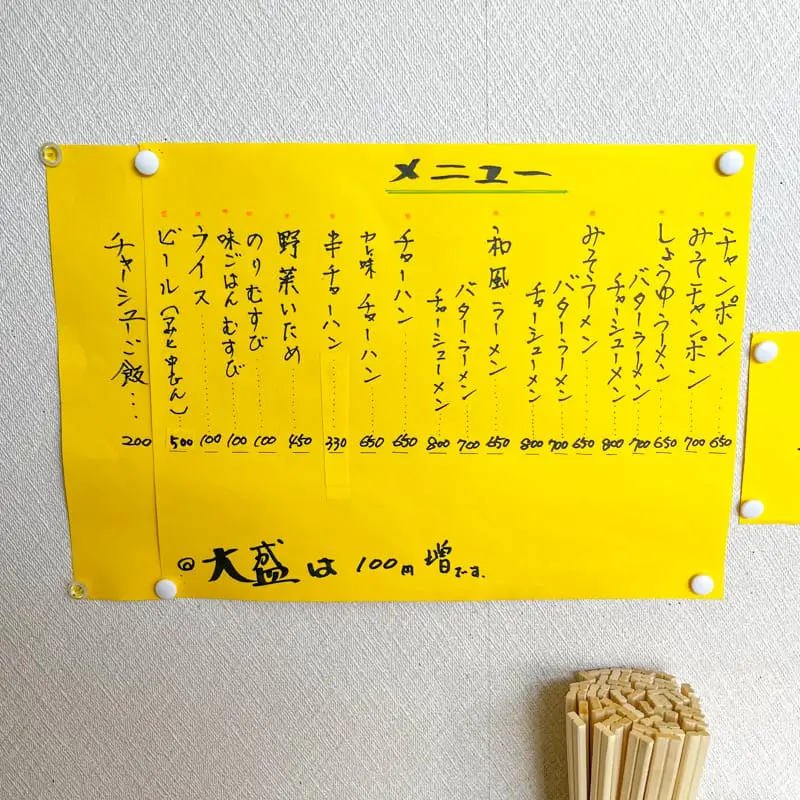 メニュー
チャンポン……650
みそチャンポン……700
しょうゆラーメン……650
バターラーメン……700
チャーシューメン……800
みそラーメン……650
バターラーメン……700
チャーシューメン……800
和風ラーメン……650
バターラーメン……700
チャーシューメン……800
チャーハン……650
カレー味チャーハン……650
半チャーハン……330
野菜いため……450
のりむすび……100
味ごはんむすび……100
ライス……100
ビール( 中びん)…500
チャーシューご飯…200
◎大盛は100円増です.